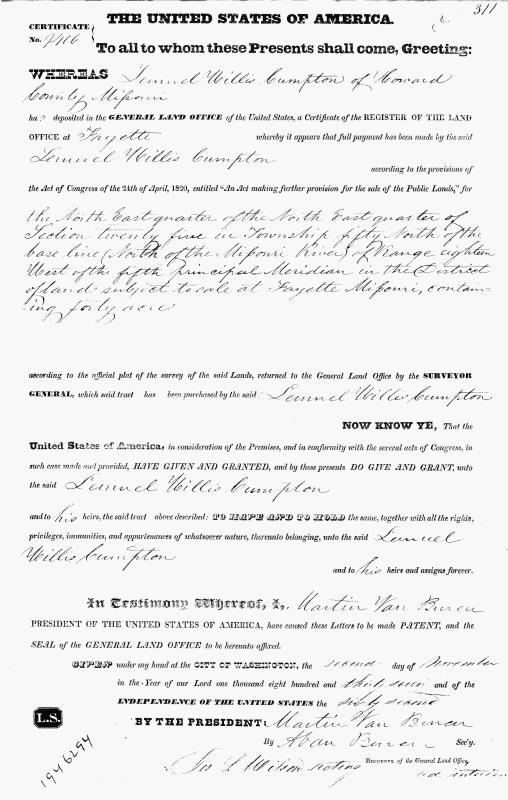 311
THE UNITED STATES OF AMERICA.
CERTIFICATE
No.
To all to whom these Presents shall come, Greeting:
WHEREAS Lemuel Willis Cumpton of Howard
County Missouri
has deposited in the GENERAL LAND OFFICE of the United States, a Certificate of the REGISTER OF THE LAND
OFFICE at Fayette whereby it appears that full payment has been made by the said
Lemuel Willis Cumpton
according to the provisions of
the Act of Congress of the 24th of April, 1820, entitled "An Act making further provision for the sale of the Public Lands," for
the North East quarter of the North East quarter of
Section twenty five in Township fifty North of the
base line (North of the Missouri River) of Range eighteen
West of the fifth principal Meridian in the District
of lands subject to sale at Fayette Missouri, contain-
ing forty acres
according to the official plat of the survey of the said Lands, returned to the General Land Office by the SURVEYOR
GENERAL, which said tract has been purchased by the said Lemuel Willis Cumpton
NOW KNOW YE, That the
United States of America, in consideration of the Premises, and in conformity with the several acts of Congress, in
such case made and provided, HAVE GIVEN AND GRANTED, and by these presents DO GIVE AND GRANT, unto
the said Lemuel Willis Cumpton
and to his heirs, the said tract above described: TO HAVE AND TO HOLD the same, together with all the rights,
privileges, immunities, and appurtenances of whatsoever nature, thereunto belonging, unto the said Lemuel
Willis Cumpton
and to his heirs and assigns forever.
In Testimony Whereof, I, Martin Van Buren
PRESIDENT OF THE UNITED STATES OF AMERICA, have caused these Letters to be made PATENT, and the
SEAL of the GENERAL LAND OFFICE to be hereunto affixed.
GIVEN under my hand at the CITY OF WASHINGTON, the second day of November
in the Year of our Lord one thousand eight hundred and thirty seven and of the
INDEPENDENCE OF THE UNITED STATES the sixty second
BY THE PRESIDENT: Martin Van Buren
L.S.
By A Van Buren Sec'y.
Jos. S. Wilson acting RECORDER of the General Land Office,
ad interim
1946294